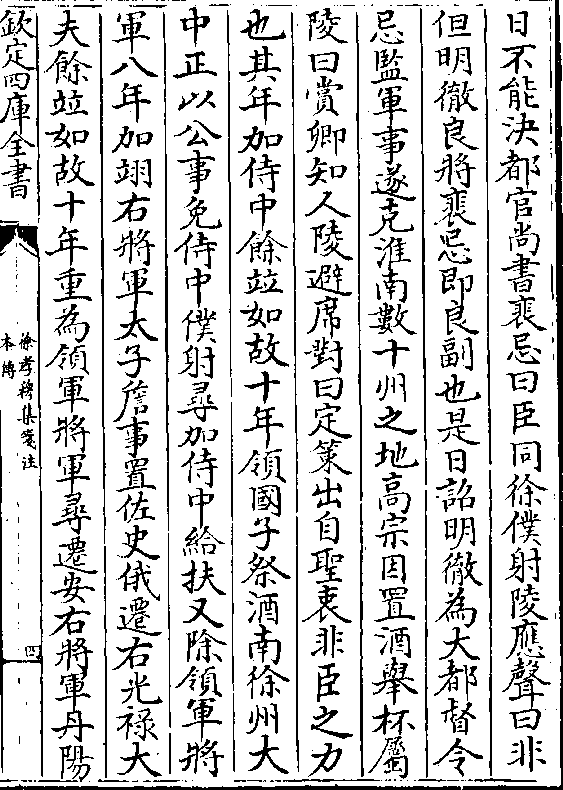 日不能決都官尚書裴忌曰臣同徐僕射陵應聲曰非
但明徹良將裴忌即良副也是日詔明徹為大都督令
忌監軍事遂克淮南數十州之地高宗因置酒舉杯屬
陵曰賞卿知人陵避席對曰定策出自聖衷非臣之力
也其年加侍中餘竝如故十年領國子祭酒南徐州大
中正以公事免侍中僕射尋加侍中給扶又除領軍將
軍八年加翊右將軍太子詹事置佐史俄遷右光祿大
夫餘竝如故十年重為領軍將軍尋遷安右將軍丹陽
欽定四庫全書
徐孝穆集箋注
本傳
四